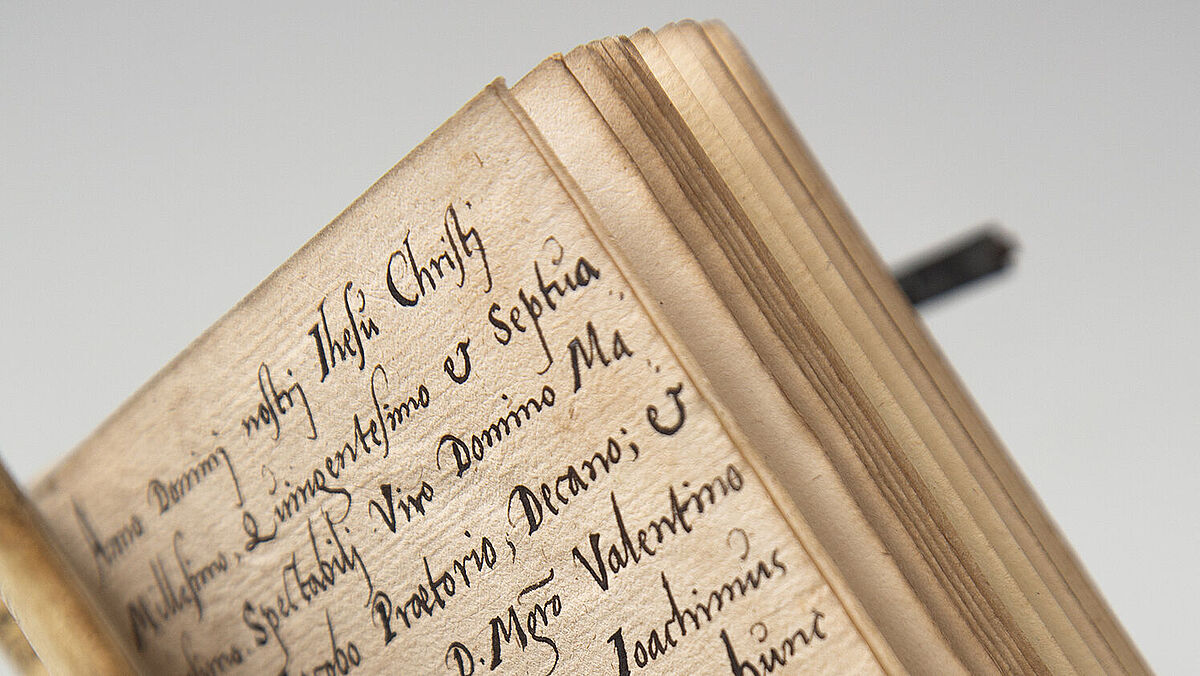 Anno Dominj nostrj Ihesu Christj
Millesimo, Quingentesimo & Septua
Spectabilj Viro Domino Ma
Prætorio, Decano; &
D. Mgrõ Valentino
Ioachimus
hunc